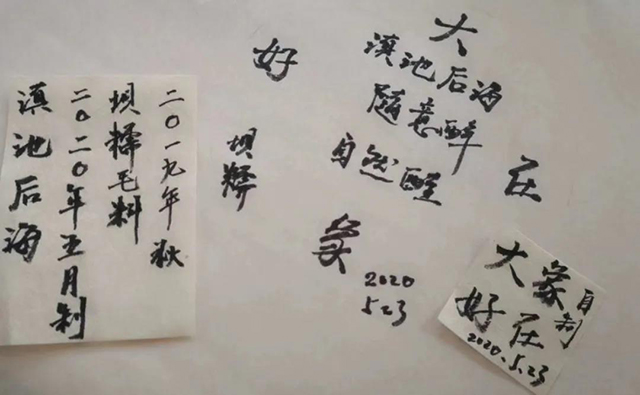 二〇一九年秋
坝毛料
二〇二〇年五月制
滇池后海
大
好
滇池后海
隨意醉
自然醒
在
坝
家
2020
5.23
大家
好在
自制
2020.5.23